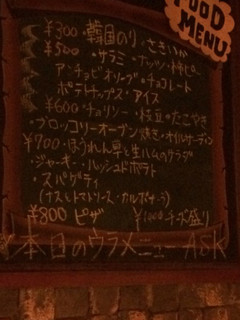 FOOD
MENU
¥300・韓国のり・さきいか
¥500・サラミ・ナッツ・柿ピー
アンチョビオリーブ・チョコレート
ポテトチップス・アイス
¥600・チョリソー・枝豆・たこやき
ブロッコリーオーブン焼き・オイルサーディン
¥700・ほうれん草と生ハムのサラダ
・ジャーキー・ハッシュドポテト
・スパゲティ
(ナスとトマトソース・カルボナーラ)
¥800 ピザ ¥1000 チーズ盛り
本日のウラメニュー ASK